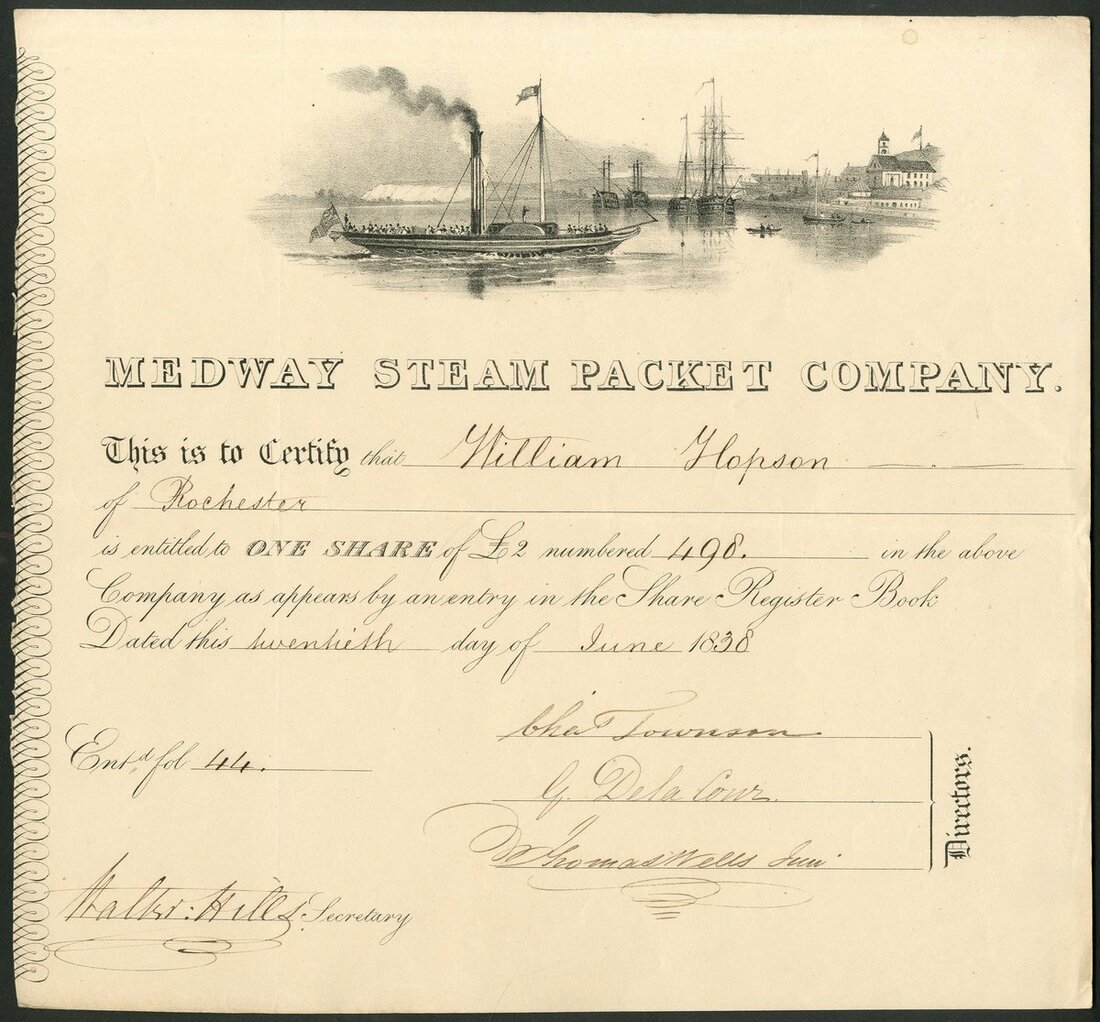 MEDWAY STEAM PACKET COMPANY.
This is to Certify that William Hopson
of Rochester
is entitled to ONE SHARE of £2 numbered 498. in the above
Company as appears by an entry in the Share Register Book
Dated this twentieth day of June 1838
Chas Townson
Entd. fol 44.
G. Dela Cour.
Thomas Wells Junr
Directors.
Walter: Hills Secretary